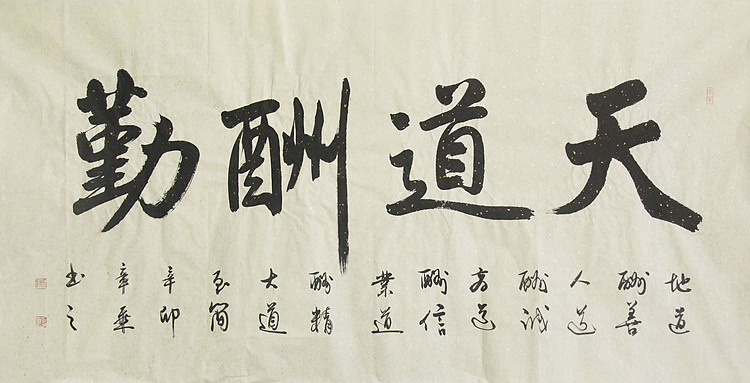 天道酬勤
地道
酬善
人道
酬诚
商道
酬信
業道
酬精
大道
至简
辛卯
书之